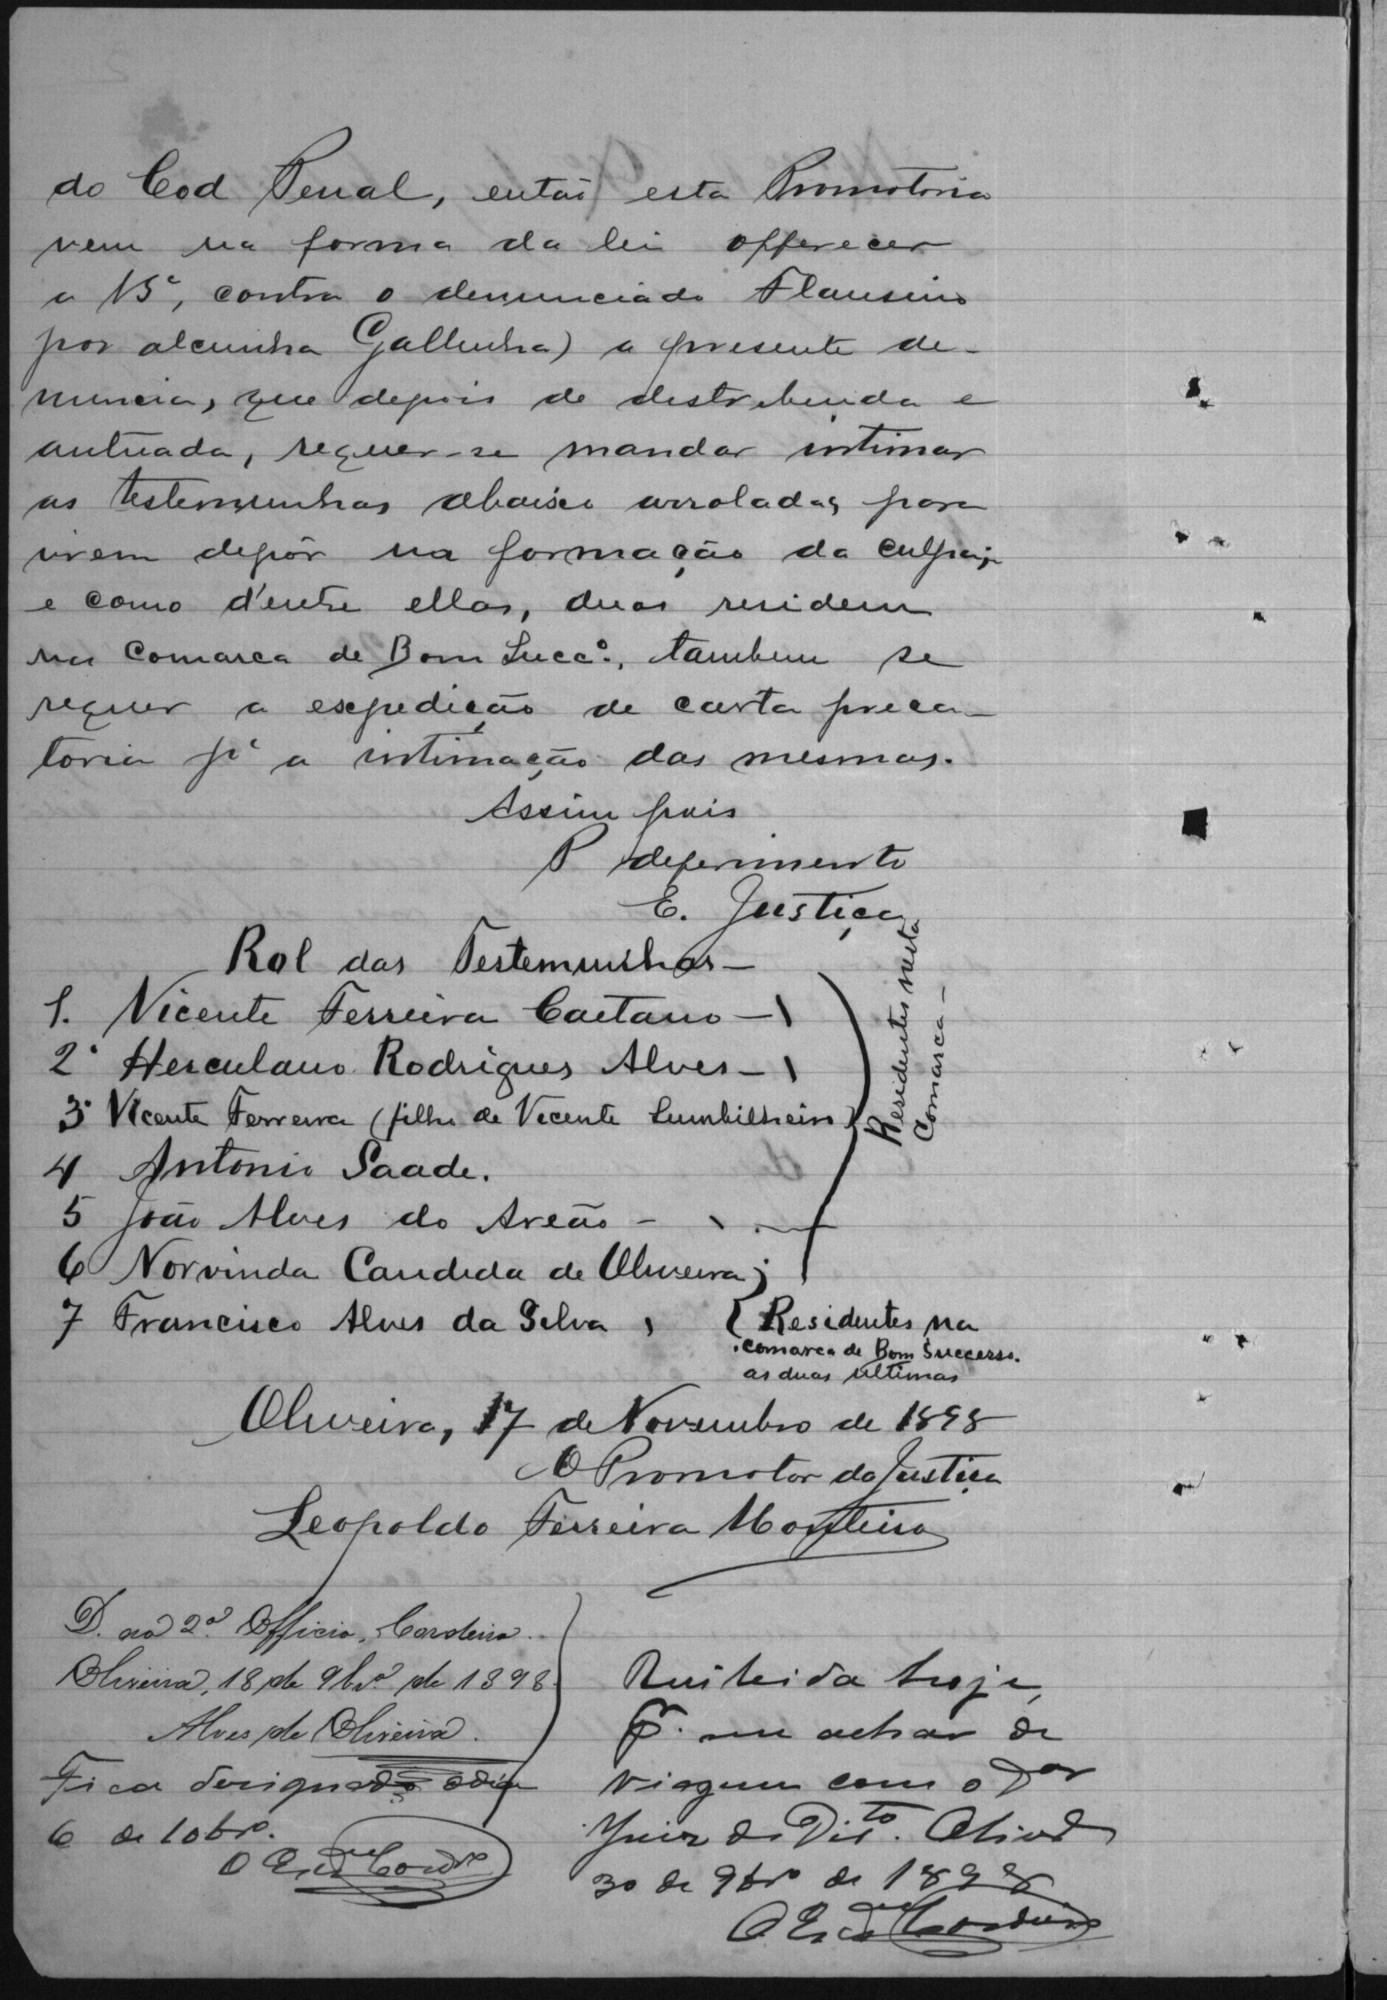 do Cod Penal, entaõ esta Promotoria
vem na forma da lei offerecer
a VSª, contra o denunciado Flausino
por alcunha Gallinha) a presente de-
nuncia, que depois de destrebuida e
autuada, requer-se mandar intimar
as testemunhas abaixo arroladas, para
virem depôr na formação da culpa;
e como d'entre ellas, duas residem
na Comarca de Bom Succº., tambem se
requer a expedição de carta preca-
toria pª a intimação das mesmas.
Assim pois
P deferimento
E. Justiça
Rol das Testemunhas—
1. Vicente Ferreira Caetano—
2º Herculano Rodrigues Alves—
3º Vicente Ferreira (filho de Vicente Lumbilheiro)
4 Antonio Saade.
5 João Alves do Areão -
6 Norvinda Candida de Oliveira;
Residentes nesta
Comarca—
7 Francisco Alves da Silva,
{ Residentes na
comarca de Bom Successo.
as duas ultimas
Oliveira, 17 de Novembro de 1898
O Promotor da Justiça
Leopoldo Ferreira Monteiro
D. ao 2º. Officio, Cordeiro.
Oliveira, 18 de 9brº. de 1898.
Alves de Oliveira.
Fica designado o dia
6 de 10brº.
O Escam Cordro
Recibida hoje,
Pr. me achar de
viagem com o Dor
Juiz de Ditº. Olivª
30 de 9brº de 1898
O Escam Cordeiro